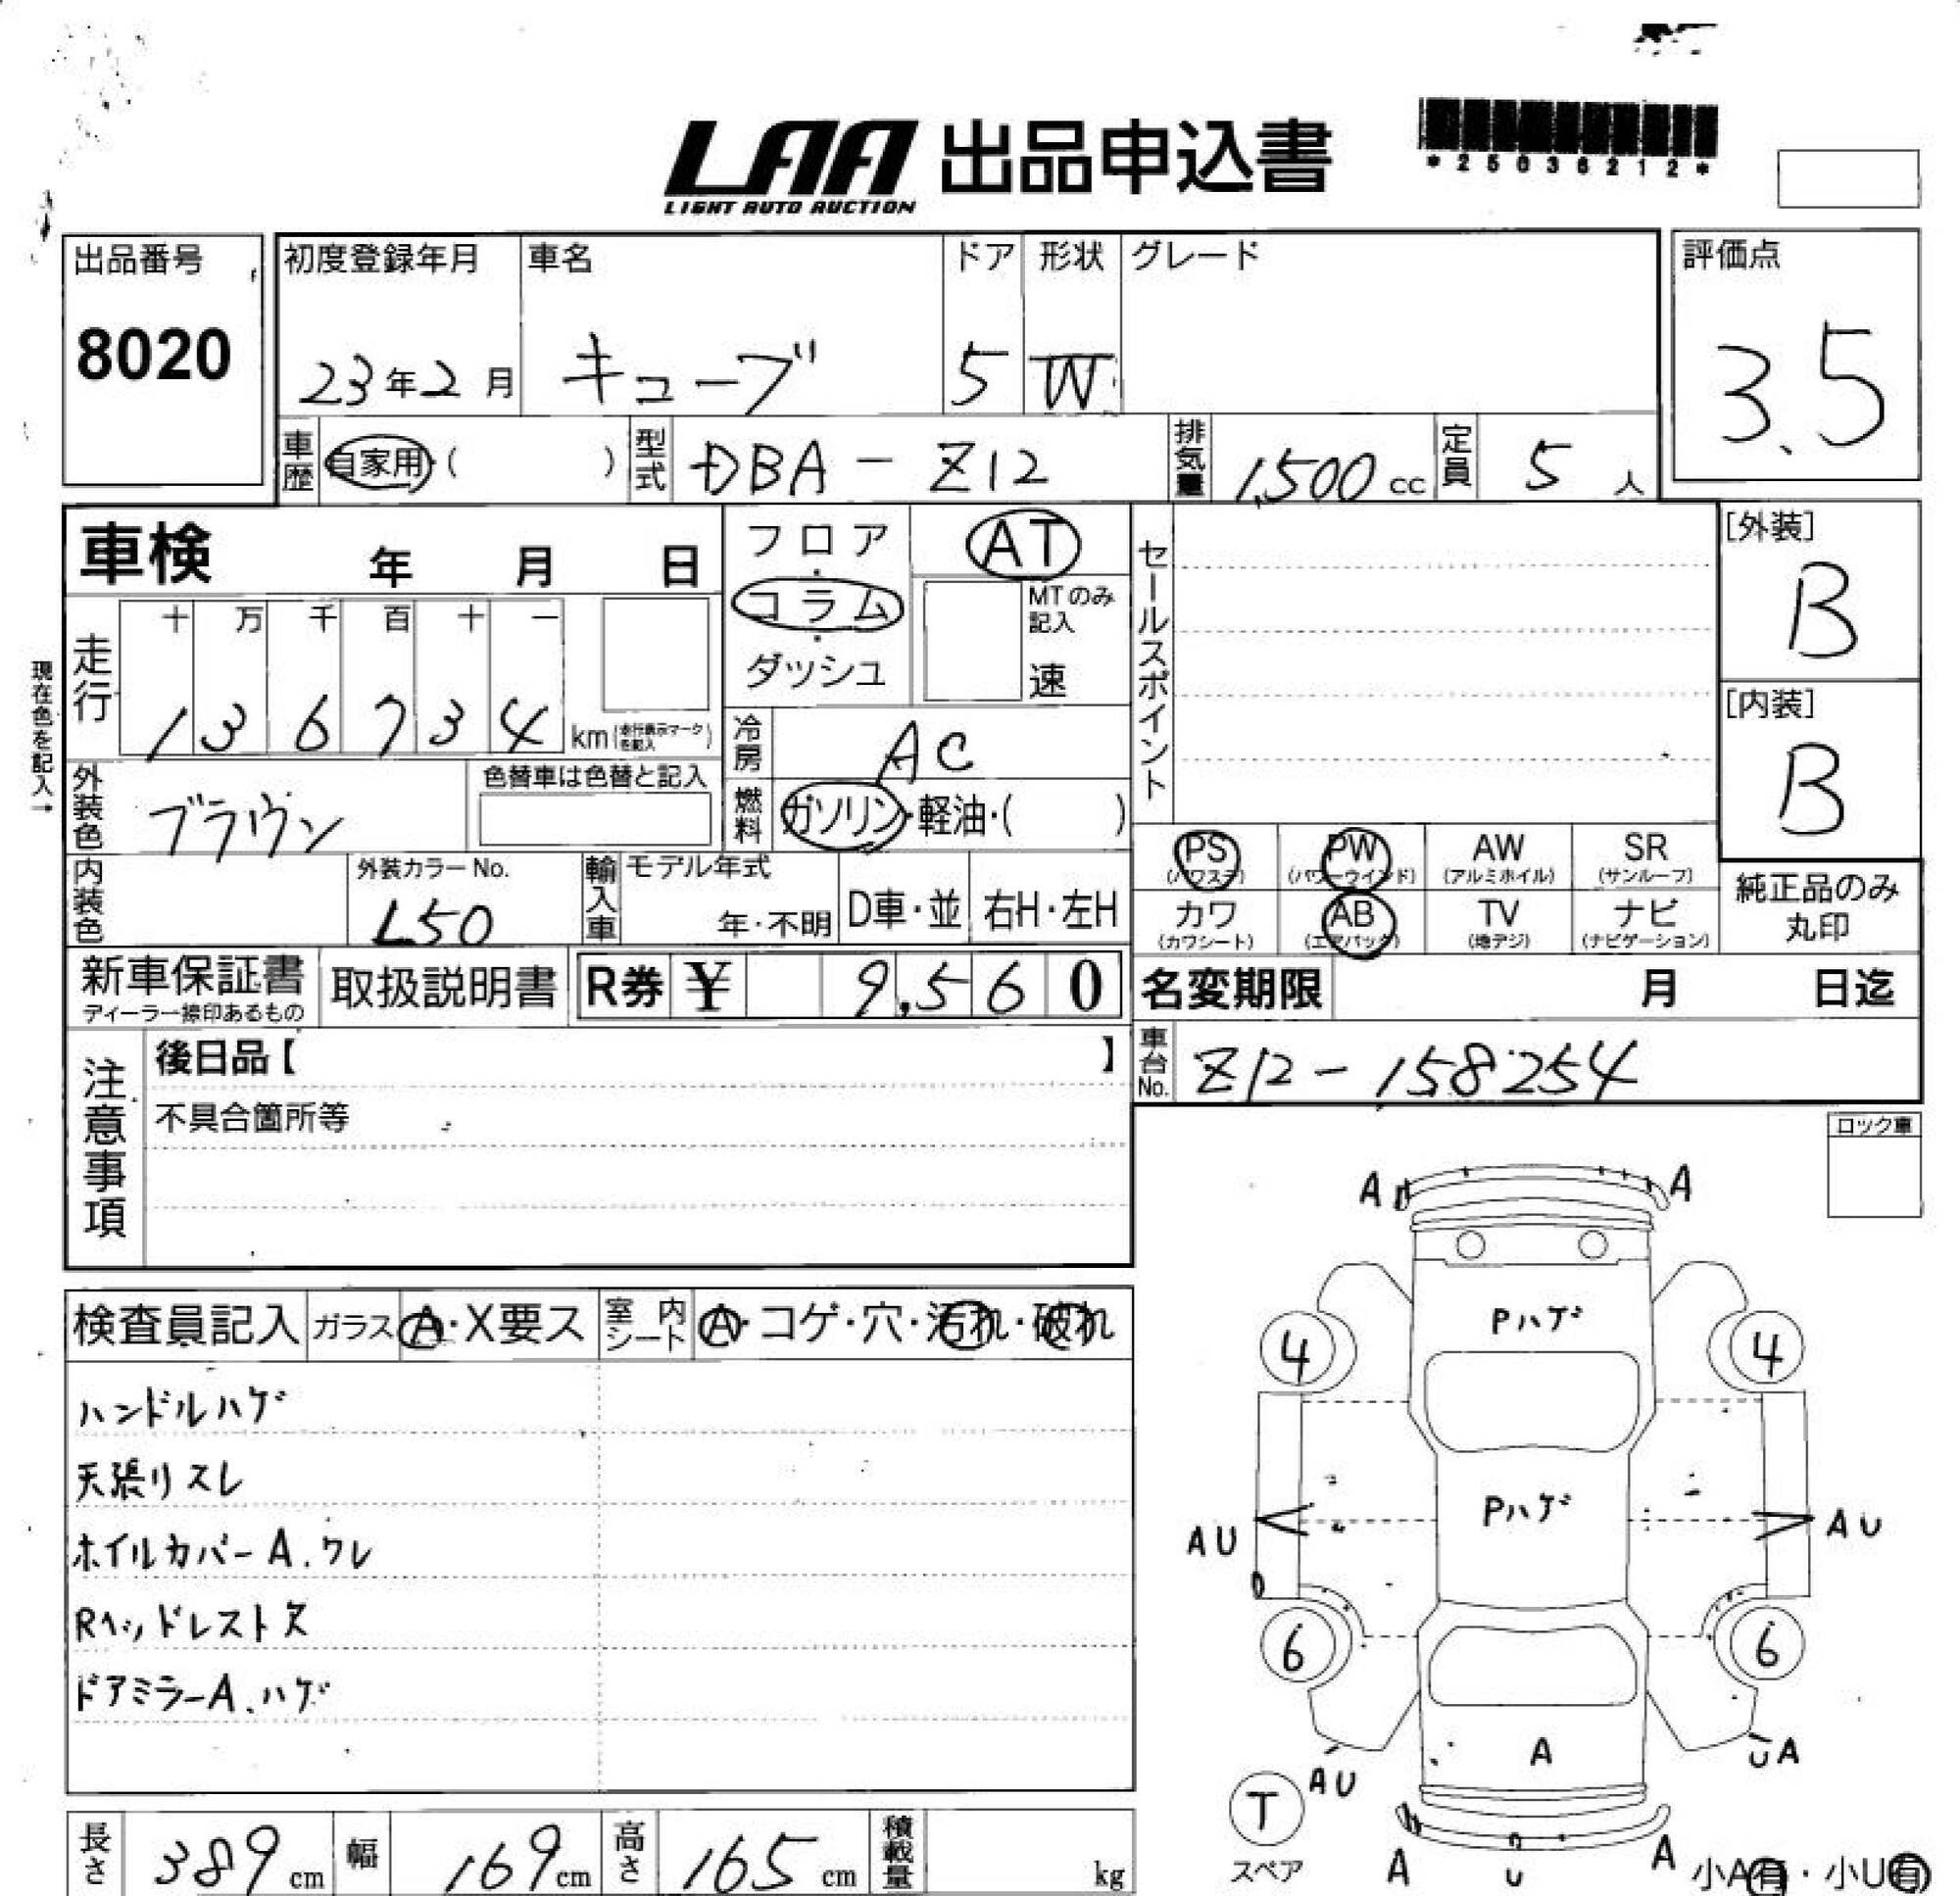 LAA 出品申込書
LIGHT AUTO AUCTION
*25036212*
出品番号
8020
初度登録年月 車名 ドア 形状 グレード
23年2月 キューブ 5 W
評価点
3.5
車歴 自家用・( ) 型式 DBA-Z12 排気量 1,500cc 定員 5人
車検 年 月 日
フロア・コラム・ダッシュ
AT
MTのみ記入
速
セールスポイント
[外装]
B
[内装]
B
現在色を記入→
走行 十 万 千 百 十 一
136734 km(走行表示マークを記入)
冷房 AC
燃料 ガソリン・軽油・( )
外装色 ブラウン
色替車は色替と記入
内装色
外装カラーNo.
L50
輸入車 モデル年式
年・不明 D車・並 右H・左H
PS PW AW SR
(パワステ) (パワーウインド) (アルミホイル) (サンルーフ)
カワ AB TV ナビ
(カワシート) (エアバック) (地デジ) (ナビゲーション)
純正品のみ
丸印
新車保証書
ディーラー捺印あるもの
取扱説明書
R券 ¥ 9,560
名変期限 月 日迄
車台No. Z12-158254
注意事項
後日品【 】
不具合箇所等
ロック車
検査員記入 ガラス A・X要ス 室内シート A・コゲ・穴・汚れ・破れ
ハンドルハゲ
天張リスレ
ホイルカバーA.ワレ
Rヘッドレスト欠
ドアミラーA.ハゲ
A A
Pハゲ
4 4
Pハゲ
AU AU
6 6
A
AU UA
T
スペア
A U A
小A有・小U有
長さ 389cm 幅 169cm 高さ 165cm 積載量 kg